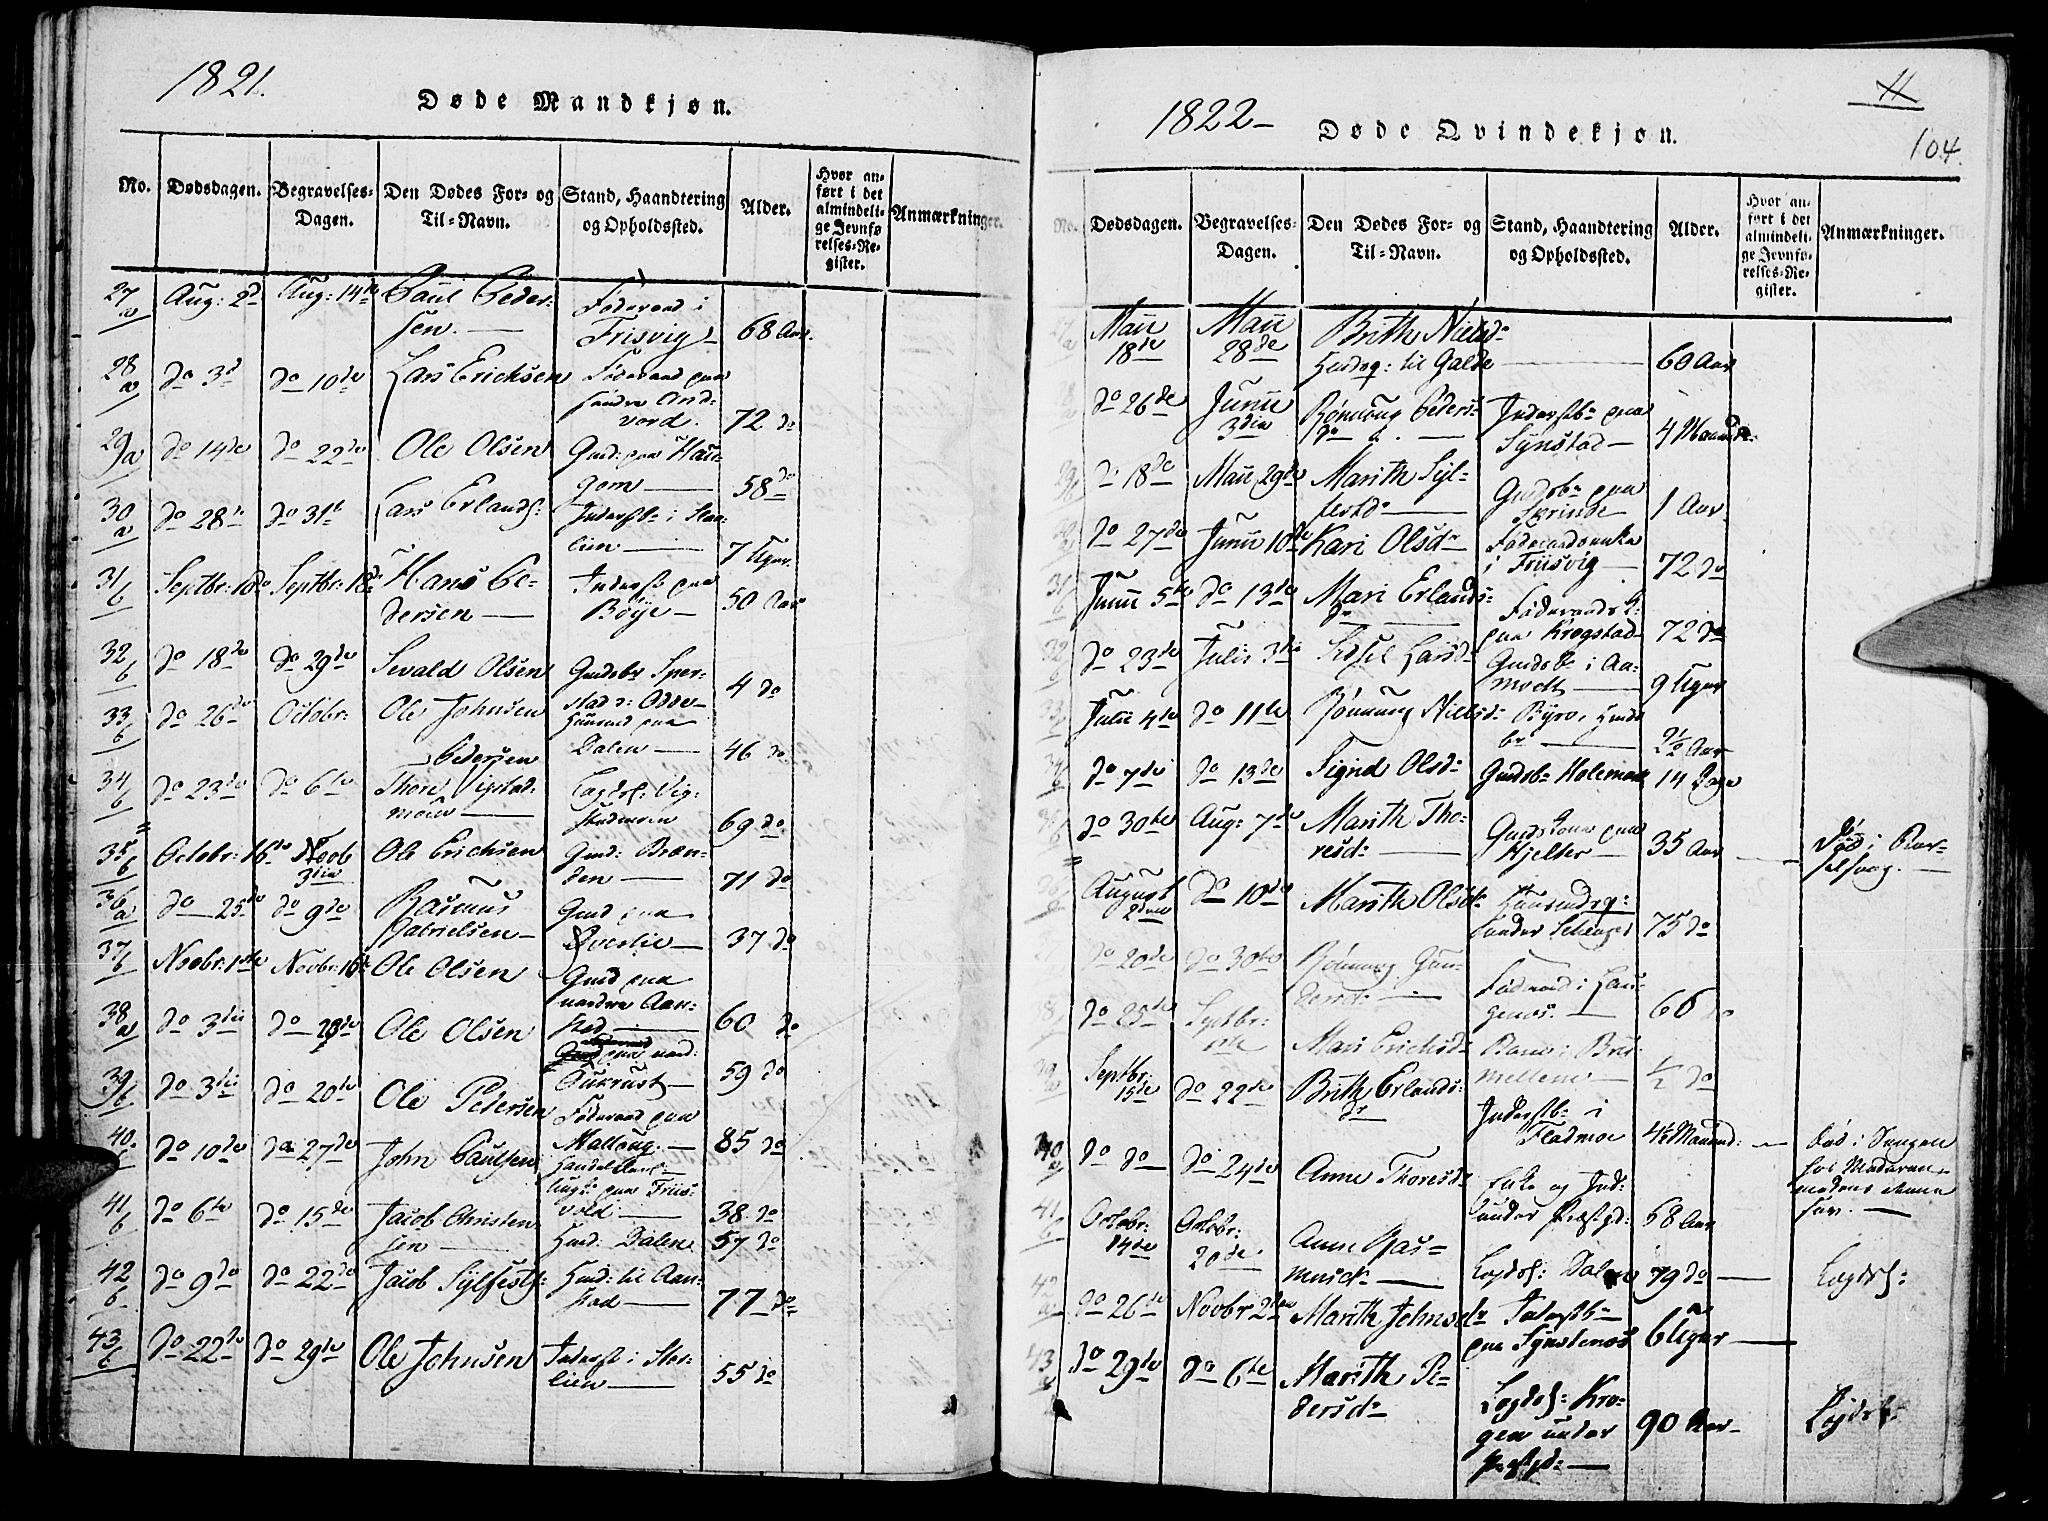 1821.
Døde Mandkjøn.
No. Dødsdagen. Begravelses-Dagen. Den Dødes For- og Til-Navn. Stand, Haandtering og Opholdssted. Alder. Hvor anført i det almindelige Jevnførelses-Register. Anmærkninger.
27 a Aug: 2d Aug: 14de Paul Peder-
sen. Føderaad i
Frisvig 68 Aar.
28 a do 3d do 10de Lars Erichsen Føderaad paa
søndre And-
vord. 72 do
29 a do 14de do 22de Ole Olsen Gmd: paa Hau-
gom 58 do
30 a do 28de do 31te Lars Erlands: Inderstb: i
lien 7 Uger
31 b Septbr: 10de Septbr: 18de Hans Pe-
dersen Inderst paa
Böye 50 Aar
32 b do 18de do 29de Sevald Olsen Gmdsbr
4 do
33 b do 26de Octobr: Ole Johnsen
Pedersen Huusmd paa
Dalen 46 do
34 b do 23de do 6te Thore Vigstad-
moen Lægdsl: Vig-
stadmoen 69 do
35 b Octobr: 16de Novb 3die Ole Erichsen Gmd: Bræn-
den 71 do
36 a do 25de do 9de Rasmus
Gabrielsen Gmd paa
Qverlie 37 do
37 b Novbr: 1ste Novbr: 16de Ole Olsen Gmd paa
nordre Aan-
stad 60 do
38 a do 3die do 29de Ole Olsen paa nord:
59 do
39 b do 3die do 20de Ole Pedersen Føderaad paa
85 do
40 do 10de da 27de John Paulsen
vold 38 do
41 b do 6te do 15de Jacob Christen
sen Hmd: Dalen 57 do
42 b do 9de do 22de Jacob Sylfests: Hmd: til Aan-
stad 77 do
43 b do 22de do 29de Ole Johnsen Inderst i Stor-
lien 55 do
1822-
Døde Qvindekjøn.
11
104.
No. Dødsdagen. Begravelses-Dagen. Den Dødes For- og Til-Navn. Stand, Haandtering og Opholdssted. Alder. Hvor anført i det almindelige Jevnførelses-Register. Anmærkninger.
Maii 18de Maii 28de Brith Nielsd:
Huusq: til Galde 60 Aar
do 26de Junii 3die Rønnoug Peders-
dr Inderstb: paa
Synstad 4 Maaned:
do 18de Maii 29de Marith Syl-
festd: Gmdsb: paa
Skrinde 1 Aar
do 27de Junii 10de Kari Olsd: Føderaadsenke
i Friisvig 72 do
31 b Junii 5te do 13de Mari Erlands-
dr Føderaads K:
paa Krogstad 72 do
32 do 23de Julii 3die Sidsel Larsd: Gmdsb: i Aa-
modt 9 Uger
Julii 4de do 11te Rønnoug Nielsd: Byre, Gmds
br 2½ Aar
do 7de do 13de Signe Olsd: Gmdsb: Holemoe 14 Dage
do 30te Aug: 7de Marith Tho-
resd: Gmdskone paa
Kjelter 35 Aar Død i Bar-
selseng.
August 2den do 10de Marith Olsd: Huusmdsq:
under 75 do
do 20de do 30te Rønnoug Gun-
dersd: Føderaad i Lau-
66 do
do 25de Septbr: Mari Erichsd: Barn i Bræ-
½ do
Septbr: 15de do 22de Brith Erlands-
dr Inderstb: i
Fladmoe 4½ Maaned: Død i Sengen
hos Moderen
40 do do do 24de Anne Thoresd: Enke og Ind:
under Præstgd: 58 Aar
41 b Octobr: 14de Octobr: 20de Anne Ras-
musd: Lægdsl: Dalen 79 do Lægdsl:
42 do 26de Novbr 2den Marith Johnsd: Inderstb:
paa Synstenos 6 Uger
43 do 29de do 6te Marith Pe-
dersd: Lægdsl: Kro-
gen under
Præstgd: 90 Aar Lægdsl: